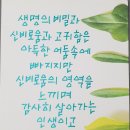 생명의 비밀과
신비로움과 고귀함은
아득한 어둠속에
빠지지만
신비로움의 영역을
느끼며
감사히 살아가는
인생이고